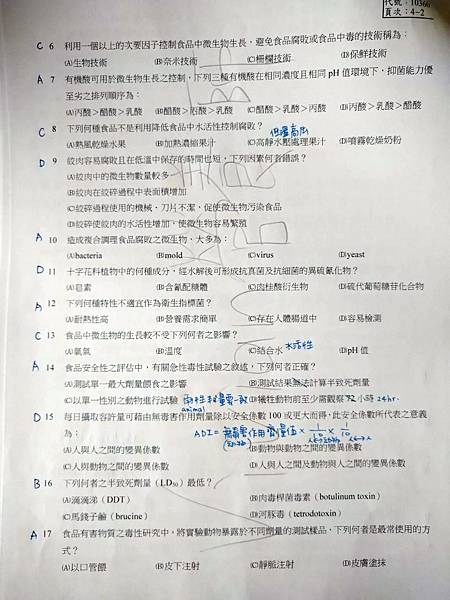 代號：10360
頁次：4-2
C 6 利用一個以上的次要因子控制食品中微生物生長，避免食品腐敗或食品中毒的技術稱為：
(A)生物技術 (B)奈米技術 (C)柵欄技術 (D)保鮮技術
A 7 有機酸可用於微生物生長之控制，下列三種有機酸在相同濃度且相同 pH 值環境下，抑菌能力優
至劣之排列順序為：
(A)丙酸＞醋酸＞乳酸 (B)醋酸＞丙酸＞乳酸 (C)醋酸＞乳酸＞丙酸 (D)丙酸＞乳酸＞醋酸
C 8 下列何種食品不是利用降低食品中水活性控制腐敗？
(A)熱風乾燥水果 (B)加熱濃縮果汁 (C)高靜水壓處理果汁 (D)噴霧乾燥奶粉
D 9 絞肉容易腐敗且在低溫中保存的時間也短，下列因素何者錯誤？
(A)絞肉中的微生物數量較多
(B)絞肉在絞碎過程中表面積增加
(C)絞碎過程使用的機械、刀片不潔，促使微生物污染食品
(D)絞碎使絞肉的水活性增加，使微生物容易繁殖
A 10 造成複合調理食品腐敗之微生物，大多為：
(A)bacteria (B)mold (C)virus (D)yeast
D 11 十字花科植物中的何種成分，經水解後可形成抗真菌及抗細菌的異硫氰化物？
(A)皂素 (B)含氰配糖體 (C)肉桂酸衍生物 (D)硫代葡萄糖苷化合物
A 12 下列何種特性不適宜作為衛生指標菌？
(A)耐熱性高 (B)營養需求簡單 (C)存在人體腸道中 (D)容易檢測
C 13 食品中微生物的生長較不受下列何者之影響？
(A)氧氣 (B)溫度 (C)結合水 水活性 (D)pH 值
A 14 食品安全性之評估中，有關急性毒性試驗之敘述，下列何者正確？
(A)測試單一最大劑量餵食之影響 (B)測試結果無法計算半致死劑量
(C)以單一性別之動物進行試驗 (D)犧牲動物前至少需觀察 72 小時 24hr.
animal
D 15 每日攝取容許量可藉由無毒害作用劑量除以安全係數 100 或更大而得，此安全係數所代表之意義
為： ADI= 無毒害作用劑量值 × 1/10 × 1/10
(A)人與人之間的變異係數 (B)動物與動物之間的變異係數
(C)人與動物之間的變異係數 (D)人與人之間及動物與人之間的變異係數
B 16 下列何者之半致死劑量（LD50）最低？
(A)滴滴涕（DDT） (B)肉毒桿菌毒素（botulinum toxin）
(C)馬錢子鹼（brucine） (D)河豚毒（tetrodotoxin）
A 17 食品有害物質之毒性研究中，將實驗動物暴露於不同劑量的測試樣品，下列何者是最常使用的方
式？
(A)以口管餵 (B)皮下注射 (C)靜脈注射 (D)皮膚塗抹